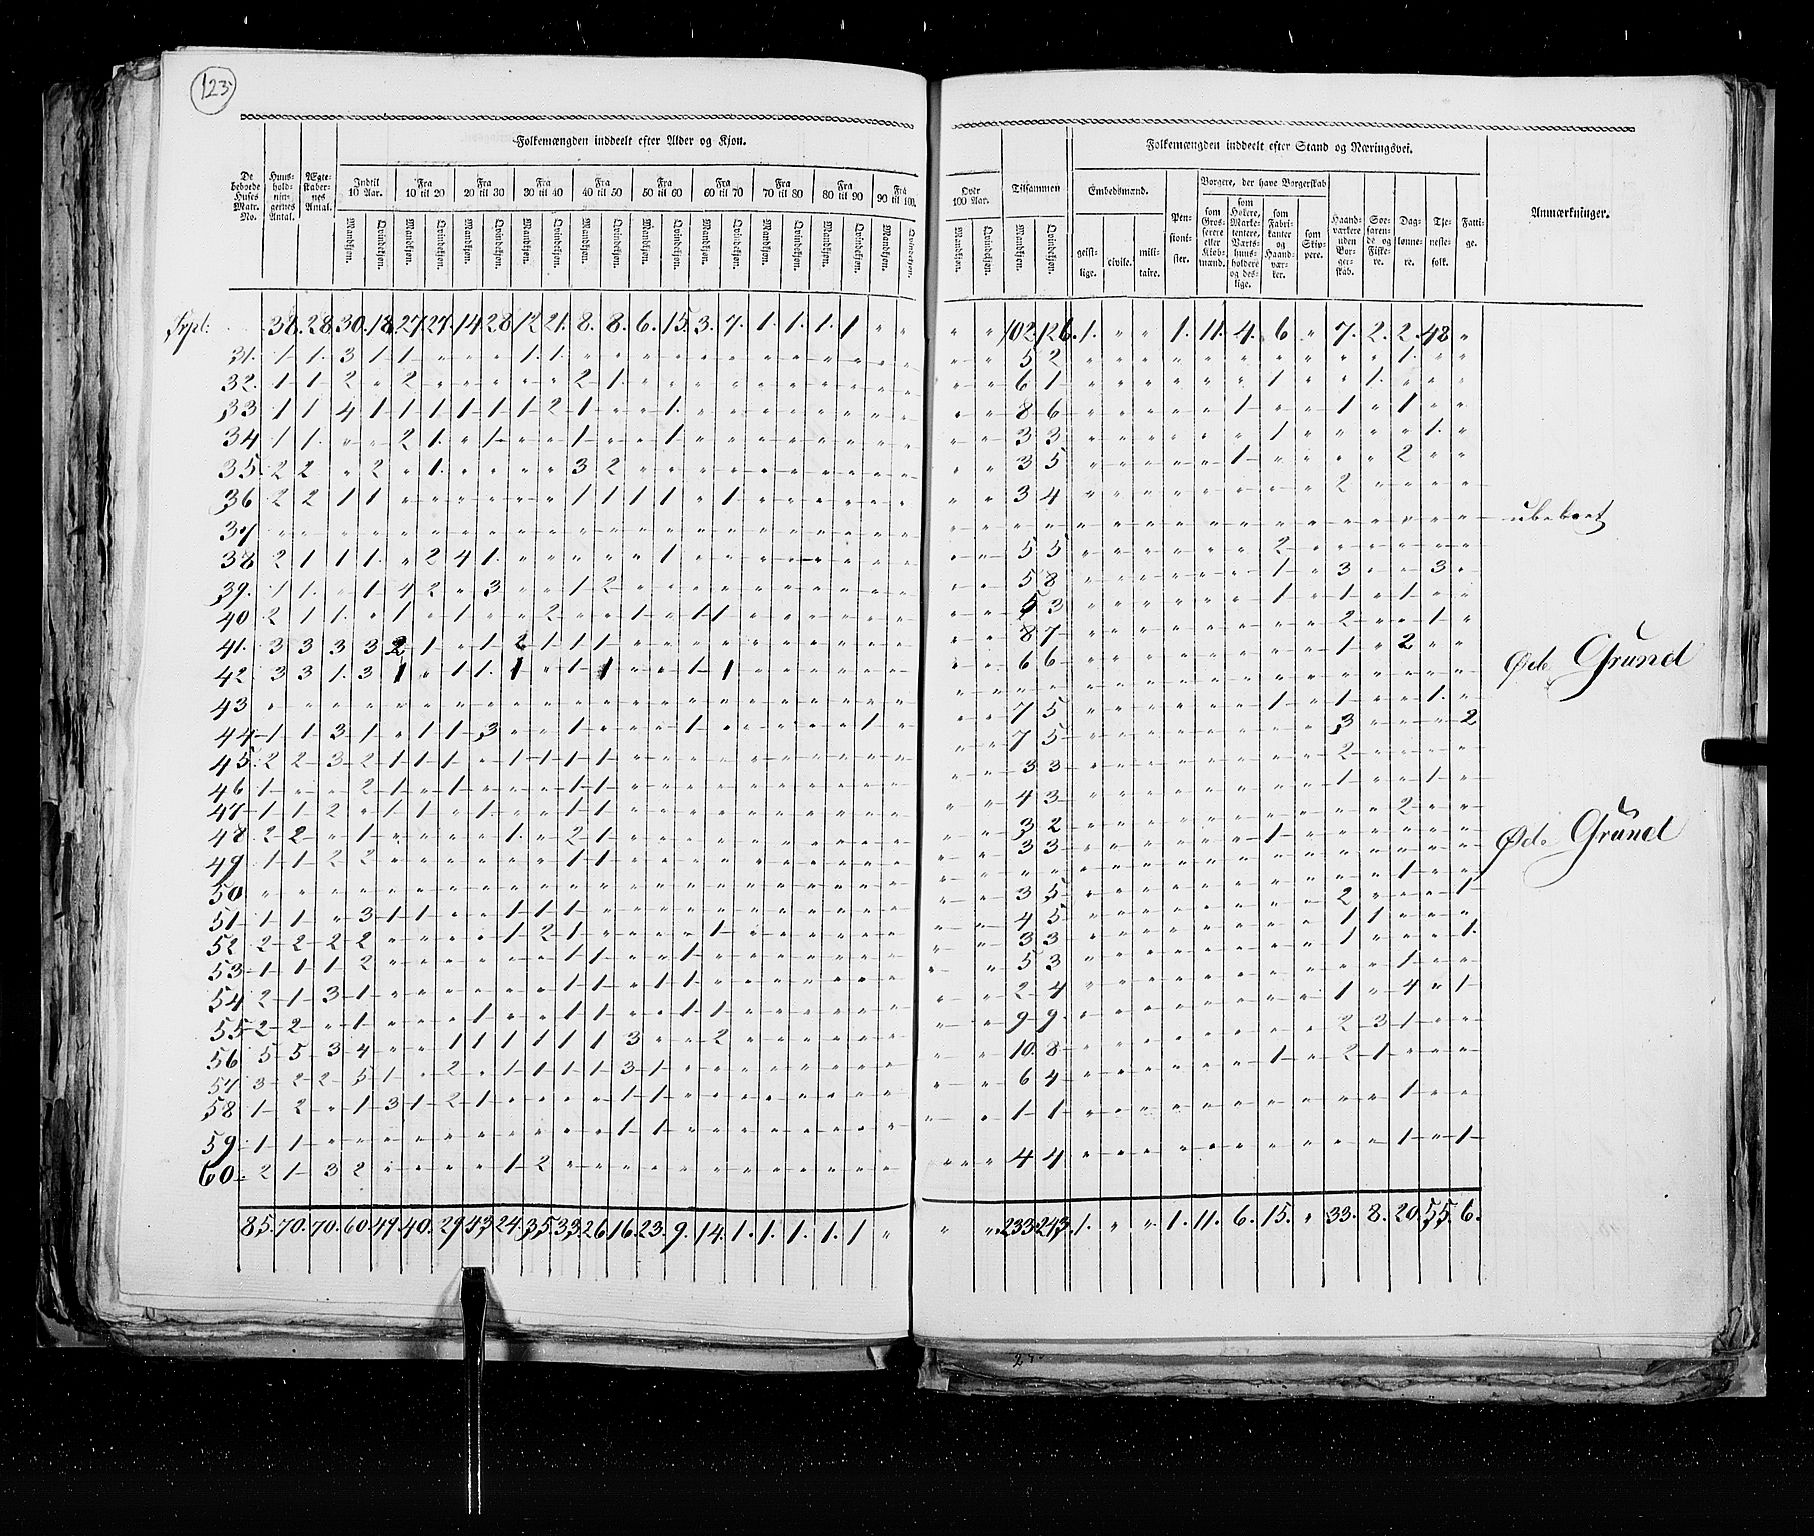 123
Folkemængden inddeelt efter Alder og Kjøn.
Folkemængden inddeelt efter Stand og Næringsvei.
De beboede Huses Matr. No.
Huus-hold-nin-gernes Antal.
Ægte-skaber-nes Antal.
Indtil 10 Aar.
Fra 10 til 20
Fra 20 til 30
Fra 30 til 40
Fra 40 til 50
Fra 50 til 60
Fra 60 til 70
Fra 70 til 80
Fra 80 til 90
Fra 90 til 100.
Over 100 Aar.
Tilsammen
Mandkjøn. Qvindekjøn.
Embedsmænd.
geist-lige. civile. mili-taire.
Pen-sioni-ster.
Borgere, der have Borgerskab
som Gros-serere eller Kjøb-mænd.
som Høkere, Marke-tentere, Værts-huus-holdere og des-lige.
som Fabri-kanter og Haand-vær-ker.
som Skip-pere.
Haand-værkere uden Bor-ger-skab.
Søe-faren-de og Fiske-re.
Dag-lønne-re.
Tje-neste-folk.
Fatti-ge.
Anmærkninger.
38. 28. 30. 18. 27. 27. 14. 28. 12. 21. 8. 8. 6. 15. 3. 7. 1. 1. 1. 1 " " " " 102. 126. 1. " " 1. 11. 4. 6 " 7. 2. 2. 48 "
31. 1 1. 3 1 1 1. 1 5 2 1.
32. 1 1 2 2 2 1. 6 1 1 1.
33 1 1 4 1 1 1 1 1 1 2 1 1. 8 6 1 1 1
34 1 1. 2 1. 1 1 1 3 3 1 1.
35. 2 2 2 1. 3 2 3 5 1 2
36 2 2 1 1 1 1 1 1 1 3 4 2
37 ubeboet
38 2 1 1 1. 2 4 1. 1 5 5 2
39. 1 1. 1 1 2 3 1 2 5 8 1 3 3
40 2 1 1. 1 1 2 1 1 1 5 3 1 1 1
41. 3 3 3 3 2 1 1 2 1 1 1 8 7 2 1
42. 3 3 1. 3 1 1 1. 1 1 1 1 1 6 6 1 2
43 Øde Grund
44 1 1 3 1 1 1 3 1 1 1 7 5 1 1 1.
45. 2 2 3 2 1 1 1 1 1 1 1 7 5 3 2
46 1 2 1 1 1 1 3 3 2
47 1 1 2 1 1 1. 1 1 4 3 1 1
48 2 2 1 1. 2 1 3 2 2
49 1 1 2 2 1 1 3 3 1
50 Øde Grund
51 1 1 3 1 1 1 1 1 3 5 1
52 2 2 2 2 1 2 1 1 4 5 2 1
53 1 1 1 2 1 1 1 3 3 1 1
54 2 1 3 1 1 1 1 1 5 3 1 1.
55 2 2 1 1 1 1 1 1 2 4 1
56 5 5 3 4 1 1 1 1 1 1 3 2 9 9 1 4 1
57 3 2 2 5 1 2 1 1 1 1 3 1 10. 8 2 3 1
58 1 2 1 3 1 2 1 1 1 6 4 1 2 1
59 1 1 1 1 1 1 1
60 2 1 3 2 1 2 4 4 1 1
85. 70. 70. 60. 49. 40. 29 43 24. 35. 33. 26 16. 23. 9. 14. 1. 1. 1. 1. 1 " " " 233. 243. 1. " " 1. 11. 6. 15. " 33. 8. 20. 55. 6.